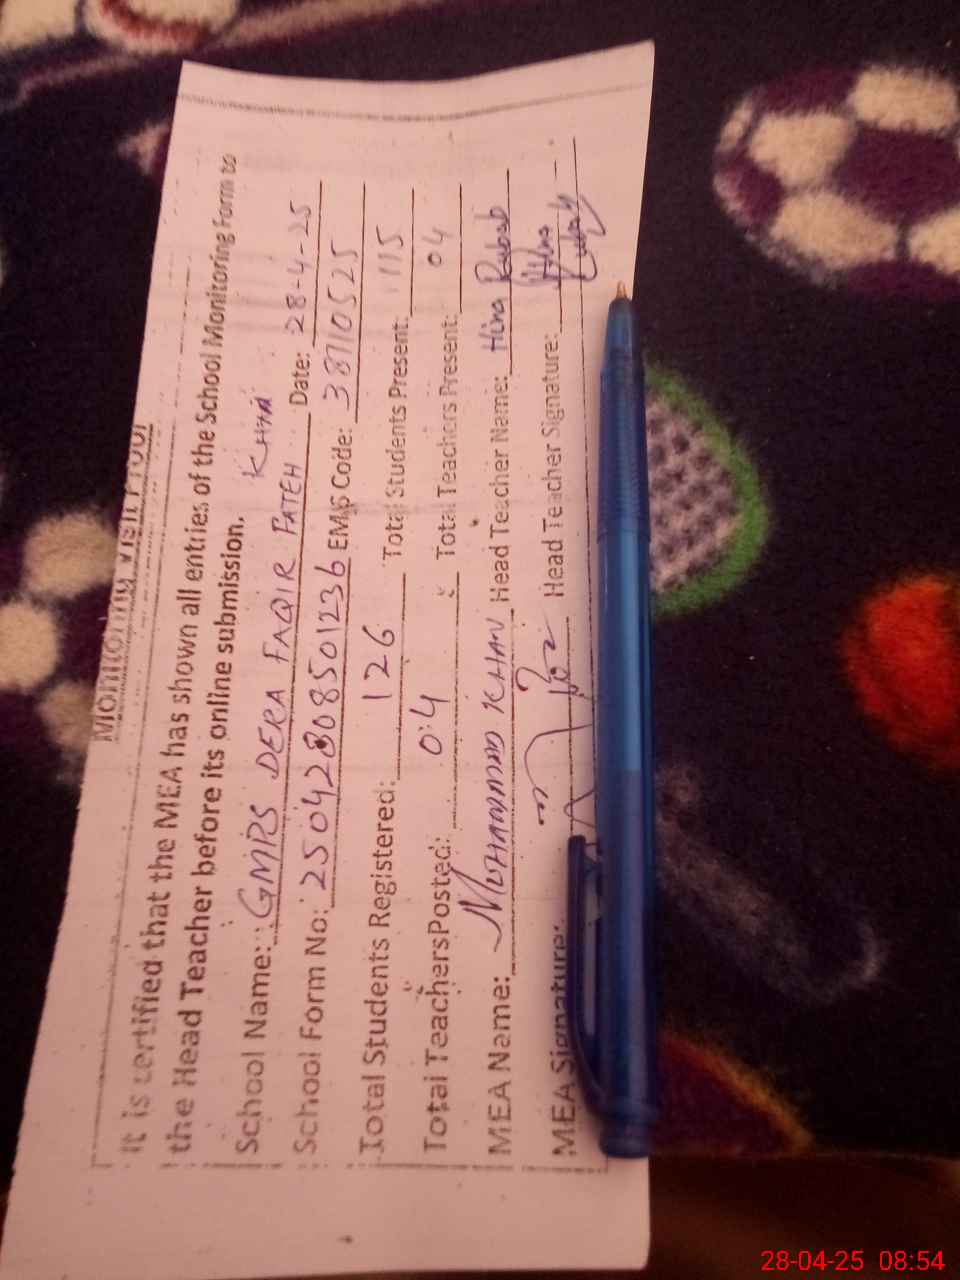 Monitoring Visit Proof
It is certified that the MEA has shown all entries of the School Monitoring Form to
the Head Teacher before its online submission.
School Name: GMPS DERA FAQIR FATEH KHAN Date: 28-4-25
School Form No: 25042808501236 EMIS Code: 38110525
Total Students Registered: 126 Total Students Present: 115
Total TeachersPosted: 04 Total Teachers Present: 04
MEA Name: MUHAMMAD KHAN Head Teacher Name: Hina Rubab
MEA Signature: Head Teacher Signature: Hina Rubab
28-04-25 08:54